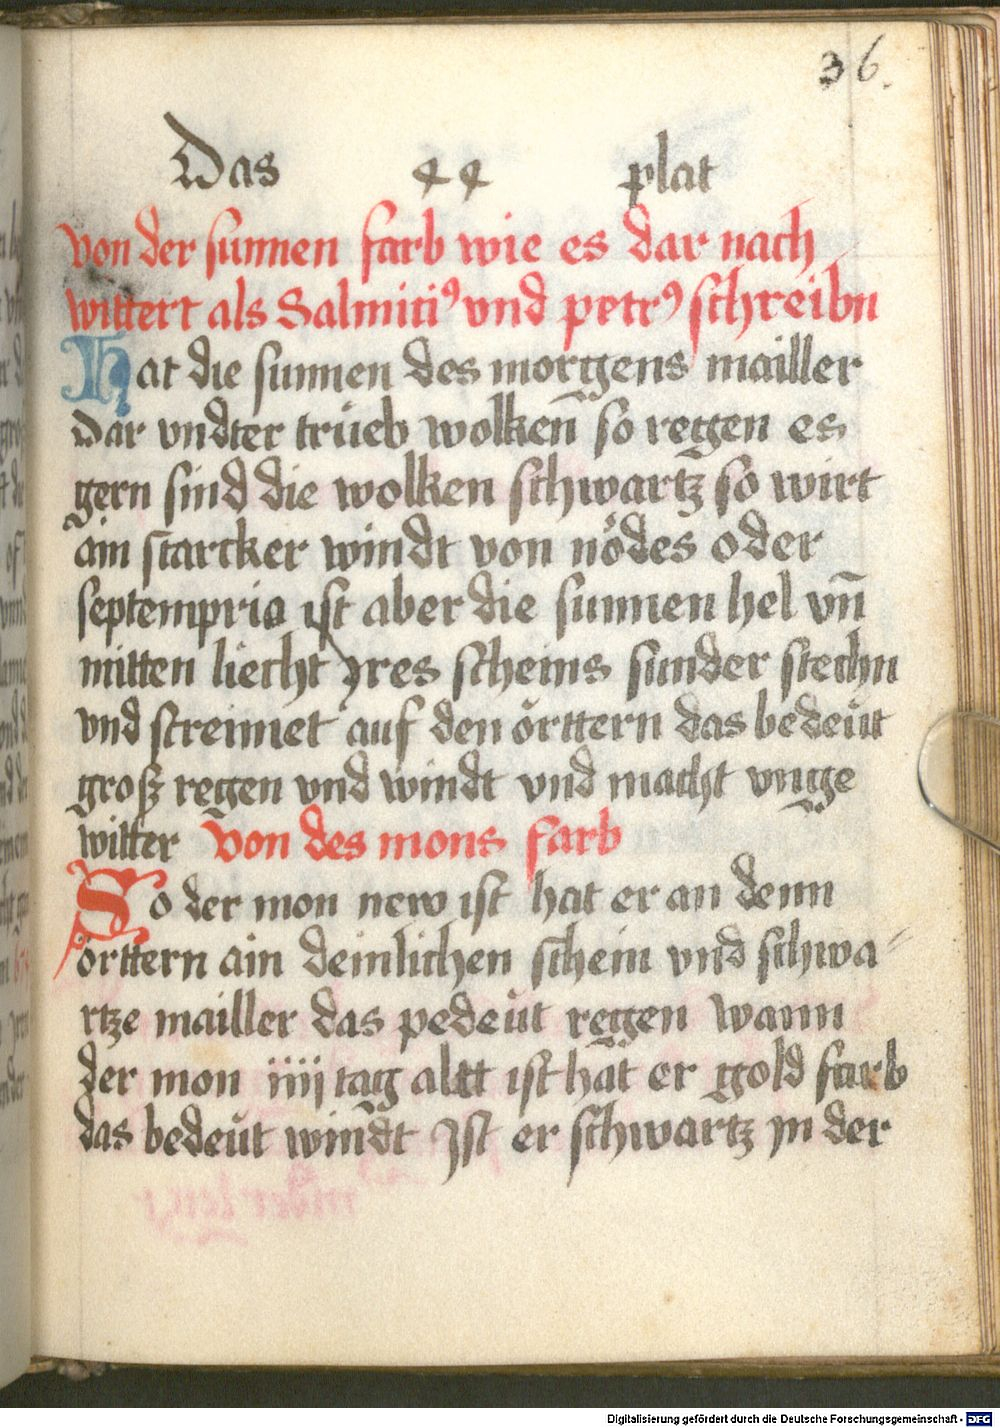 36.
Das 44 plat
von der sunnen farb wie es dar nach
wittert als Salmitiꝰ vnd petrꝰ schreibn
Hat die sunnen des morgens mailler
Dar vndter trüeb wolken̄ so regen es
gern sind die wolken schwartz so wirt
ain starcker windt von nödes oder
septemprio ist aber die sunnen hel vn̄
mitten liecht yres scheins sunder stechn
vnd streimet auf den örttern das bedeüt
groß regen vnd windt vnd macht vnge
witter von des mons farb
So der mon new ist hat er an denn
örttern ain deinlichen schein vnd schwa-
rtze mailler das pedeüt regen wann
der mon iiij tag altt ist hat er gold farb
das bedeüt windt Ist er schwartz yn der
Digitalisierung gefördert durch die Deutsche Forschungsgemeinschaft - DFG